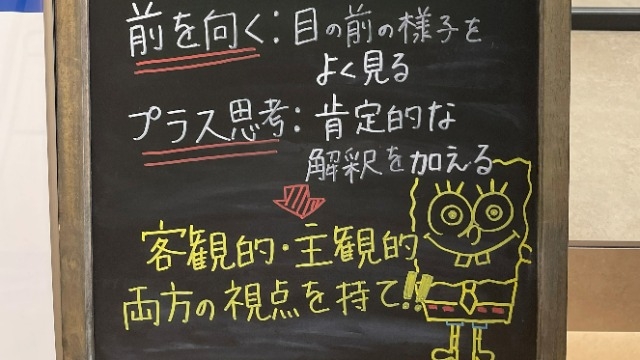 前を向く：目の前の様子を
よく見る
プラス思考：肯定的な
解釈を加える
客観的・主観的
両方の視点を持て!!